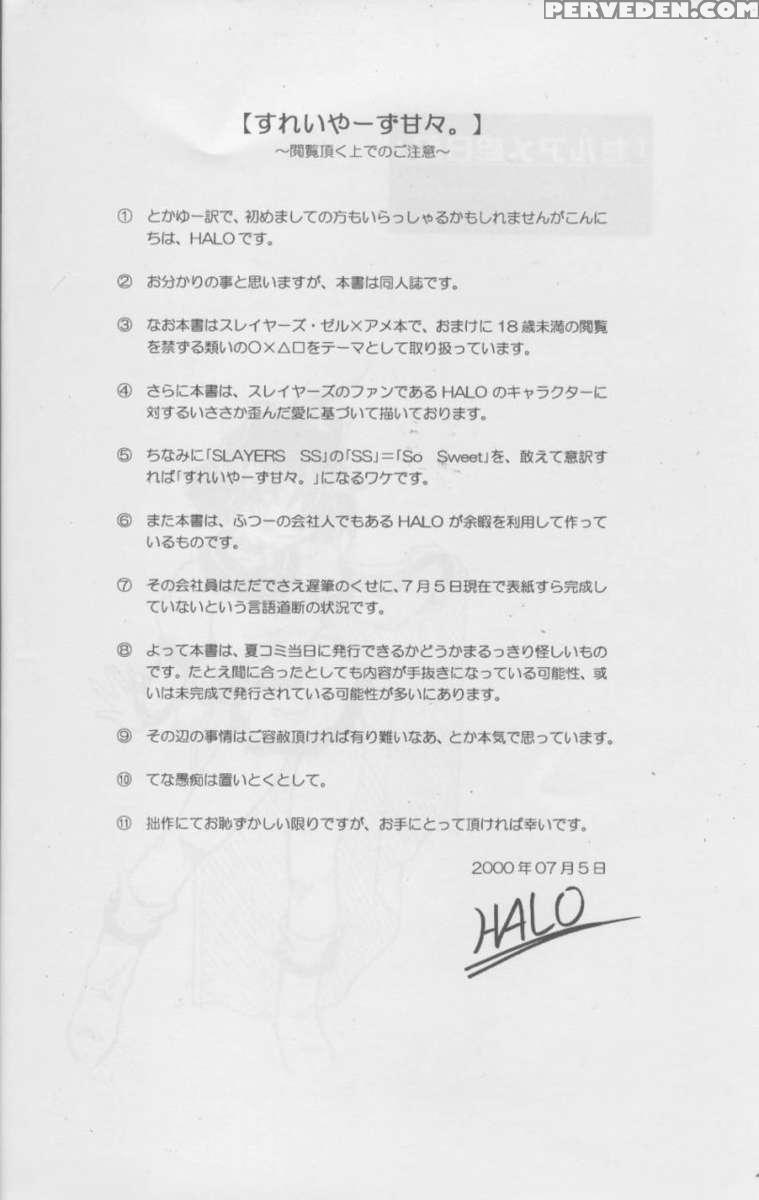 PERVEDEN.COM
【すれいやーず甘々。】
～閲覧頂く上でのご注意～
① とかゆー訳で、初めましての方もいらっしゃるかもしれませんがこんに
ちは、HALOです。
② お分かりの事と思いますが、本書は同人誌です。
③ なお本書はスレイヤーズ・ゼル×アメ本で、おまけに18歳未満の閲覧
を禁ずる類いの○×△□をテーマとして取り扱っています。
④ さらに本書は、スレイヤーズのファンであるHALOのキャラクターに
対するいささか歪んだ愛に基づいて描いております。
⑤ ちなみに「SLAYERS SS」の「SS」＝「So Sweet」を、敢えて意訳す
れば「すれいやーず甘々。」になるワケです。
⑥ また本書は、ふつーの会社人でもあるHALOが余暇を利用して作って
いるものです。
⑦ その会社員はただでさえ遅筆のくせに、7月5日現在で表紙すら完成し
ていないという言語道断の状況です。
⑧ よって本書は、夏コミ当日に発行できるかどうかまるっきり怪しいもの
です。たとえ間に合ったとしても内容が手抜きになっている可能性、或
いは未完成で発行されている可能性が多いにあります。
⑨ その辺の事情はご容赦頂ければ有り難いなあ、とか本気で思っています。
⑩ てな愚痴は置いとくとして。
⑪ 拙作にてお恥ずかしい限りですが、お手にとって頂ければ幸いです。
2000年07月5日
HALO